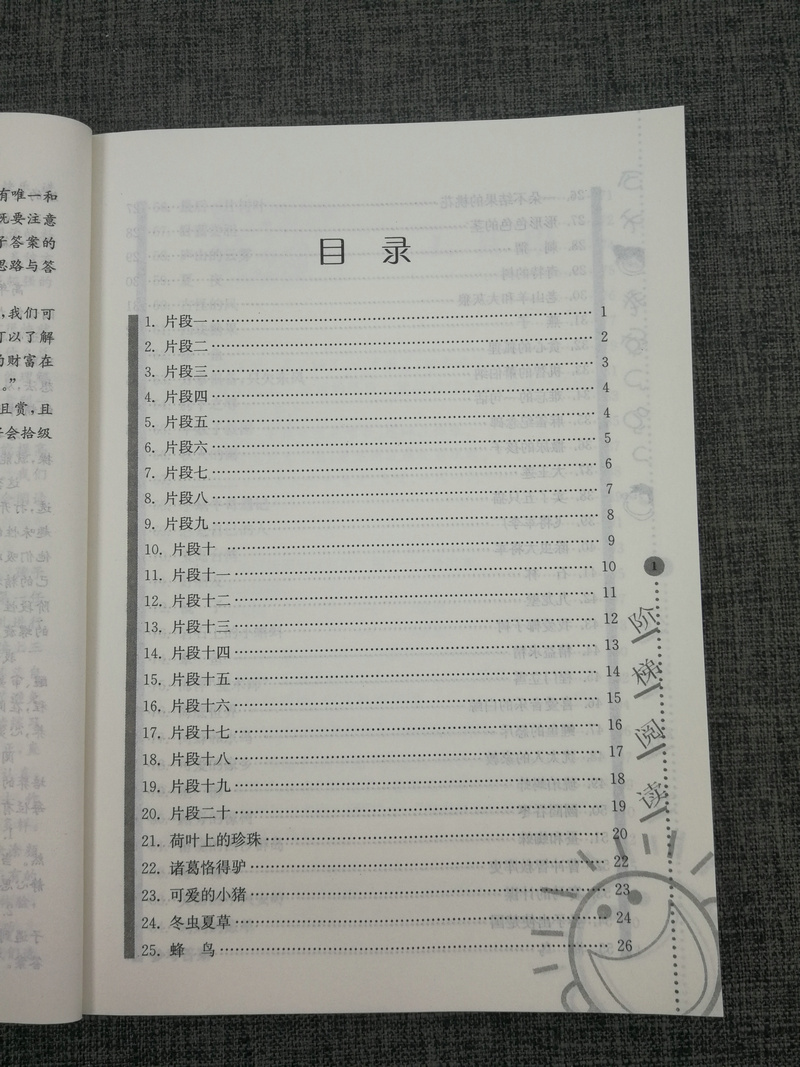 有唯一和
既要注意
子答案的
思路与答
，我们可
可以了解
的财富在
。”
且赏，且
会拾级
目 录
1. 片段一 1
2. 片段二 2
3. 片段三 3
4. 片段四 4
5. 片段五 4
6. 片段六 5
7. 片段七 6
8. 片段八 7
9. 片段九 8
10. 片段十 9
11. 片段十一 10
12. 片段十二 11
13. 片段十三 12
14. 片段十四 13
15. 片段十五 14
16. 片段十六 15
17. 片段十七 16
18. 片段十八 17
19. 片段十九 18
20. 片段二十 19
21. 荷叶上的珍珠 20
22. 诸葛恪得驴 22
23. 可爱的小猪 23
24. 冬虫夏草 24
25. 蜂 鸟 26
1
阶梯阅读